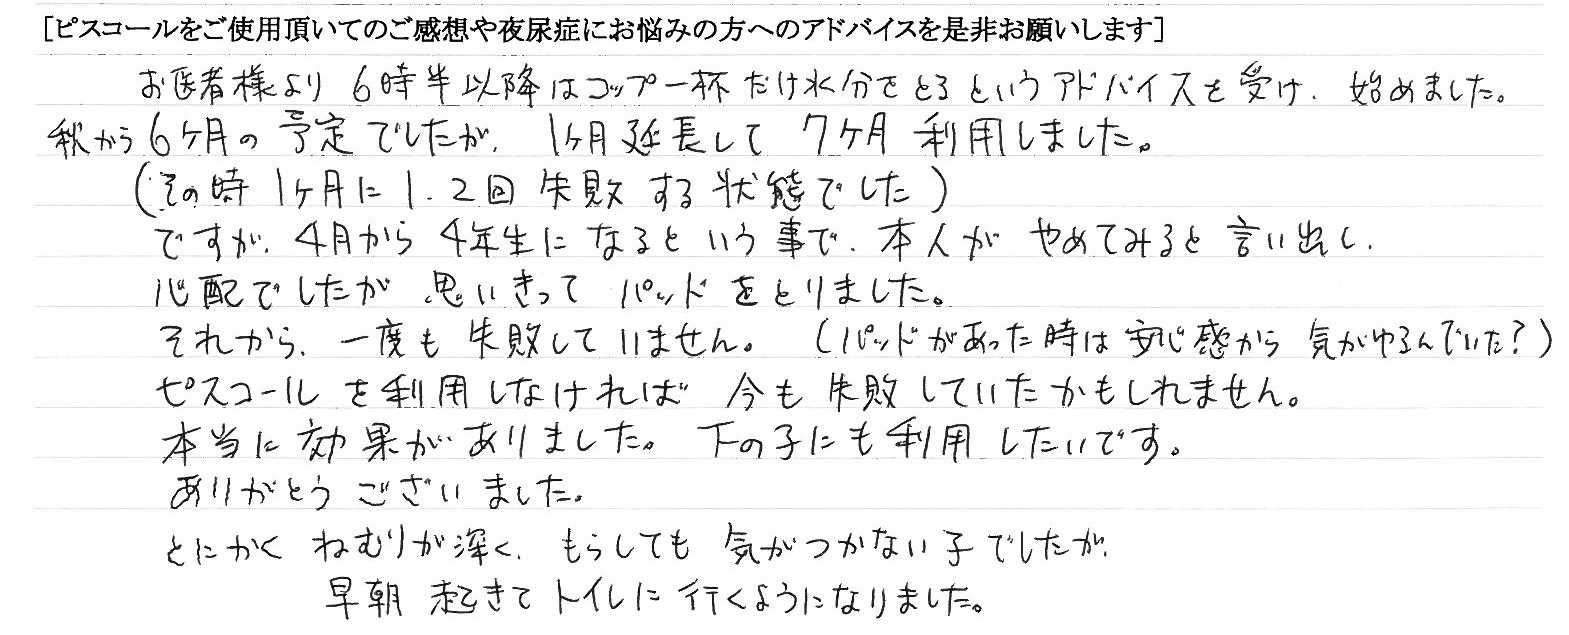 [ピスコールをご使用頂いてのご感想や夜尿症にお悩みの方へのアドバイスを是非お願いします]
お医者様より 6時半以降はコップ一杯だけ水分をとるというアドバイスを受け、始めました。
秋から6ケ月の予定でしたが、1ケ月延長して 7ケ月 利用しました。
(その時 1ケ月に 1.2回 失敗する状態でした)
ですが、4月から 4年生になるという事で、本人が やめてみると言い出し、
心配でしたが 思いきって パッドをとりました。
それから、一度も失敗していません。(パッドがあった時は安心感から 気がゆるんでいた?)
ピスコールを利用しなければ 今も失敗していたかもしれません。
本当に効果がありました。下の子にも利用したいです。
ありがとうございました。
とにかく ねむりが深く、もらしても 気がつかない子でしたが、
早朝 起きてトイレに行くようになりました。